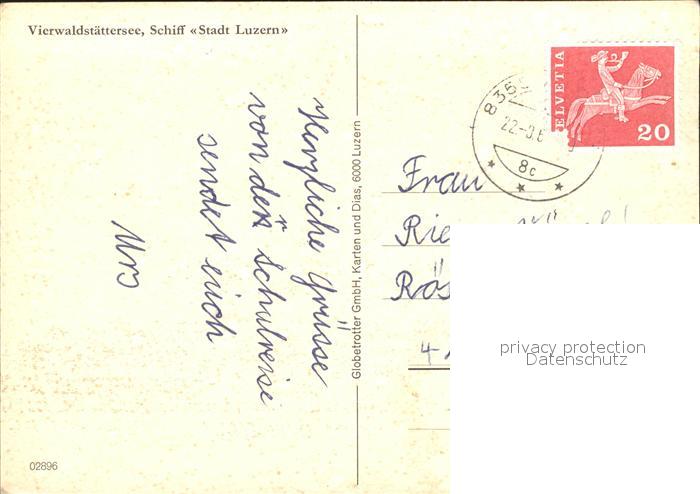 Vierwaldstättersee, Schiff «Stadt Luzern»
Herzliche Grüsse
von der Schulreise
sendet euch
Urs
02896
Globetrotter GmbH, Karten und Dias, 6000 Luzern
HELVETIA
20
22.-9.6
8c
Frau
privacy protection
Datenschutz